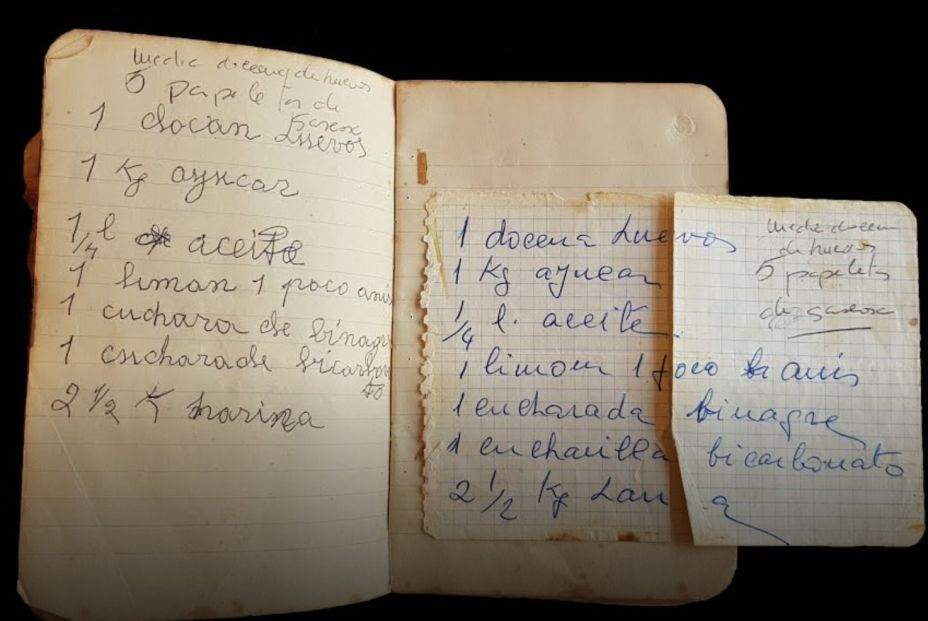 media docena de huevos
5 papeletas de
gaseosa
1 docan Huevos
1 Kg azucar
1/4 l aceite
1 liman 1 poco anis
1 cuchara de binagr
1 cucharade bicarbon
to
2 1/2 K harina
1 docena Huevos
1 Kg azucar
1/4 l. aceite
1 limom 1 poco anis
1 cucharada binagre
1 cucharilla bicarbonato
2 1/2 Kg Hari a
media docena
de huevos
5 papeletas
de gaseosa